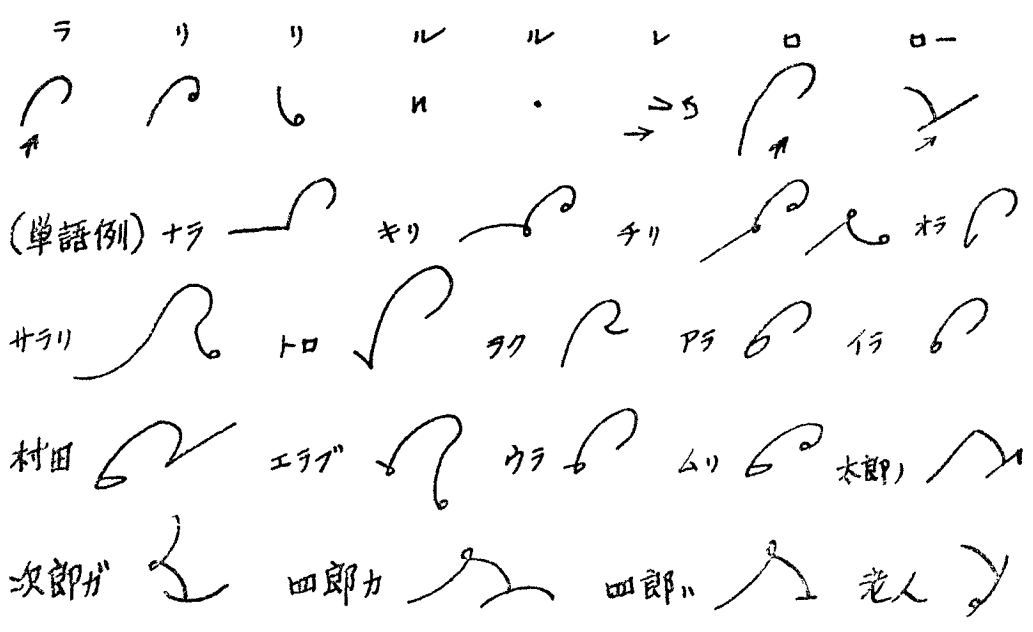 ラ リ リ ル ル レ ロ ロー
(単語例) ナラ キリ チリ オラ
サラリ トロ ラク アラ イラ
村田 エラブ ウラ ムリ 太郎ノ
次郎ガ 四郎カ 四郎ハ 老人